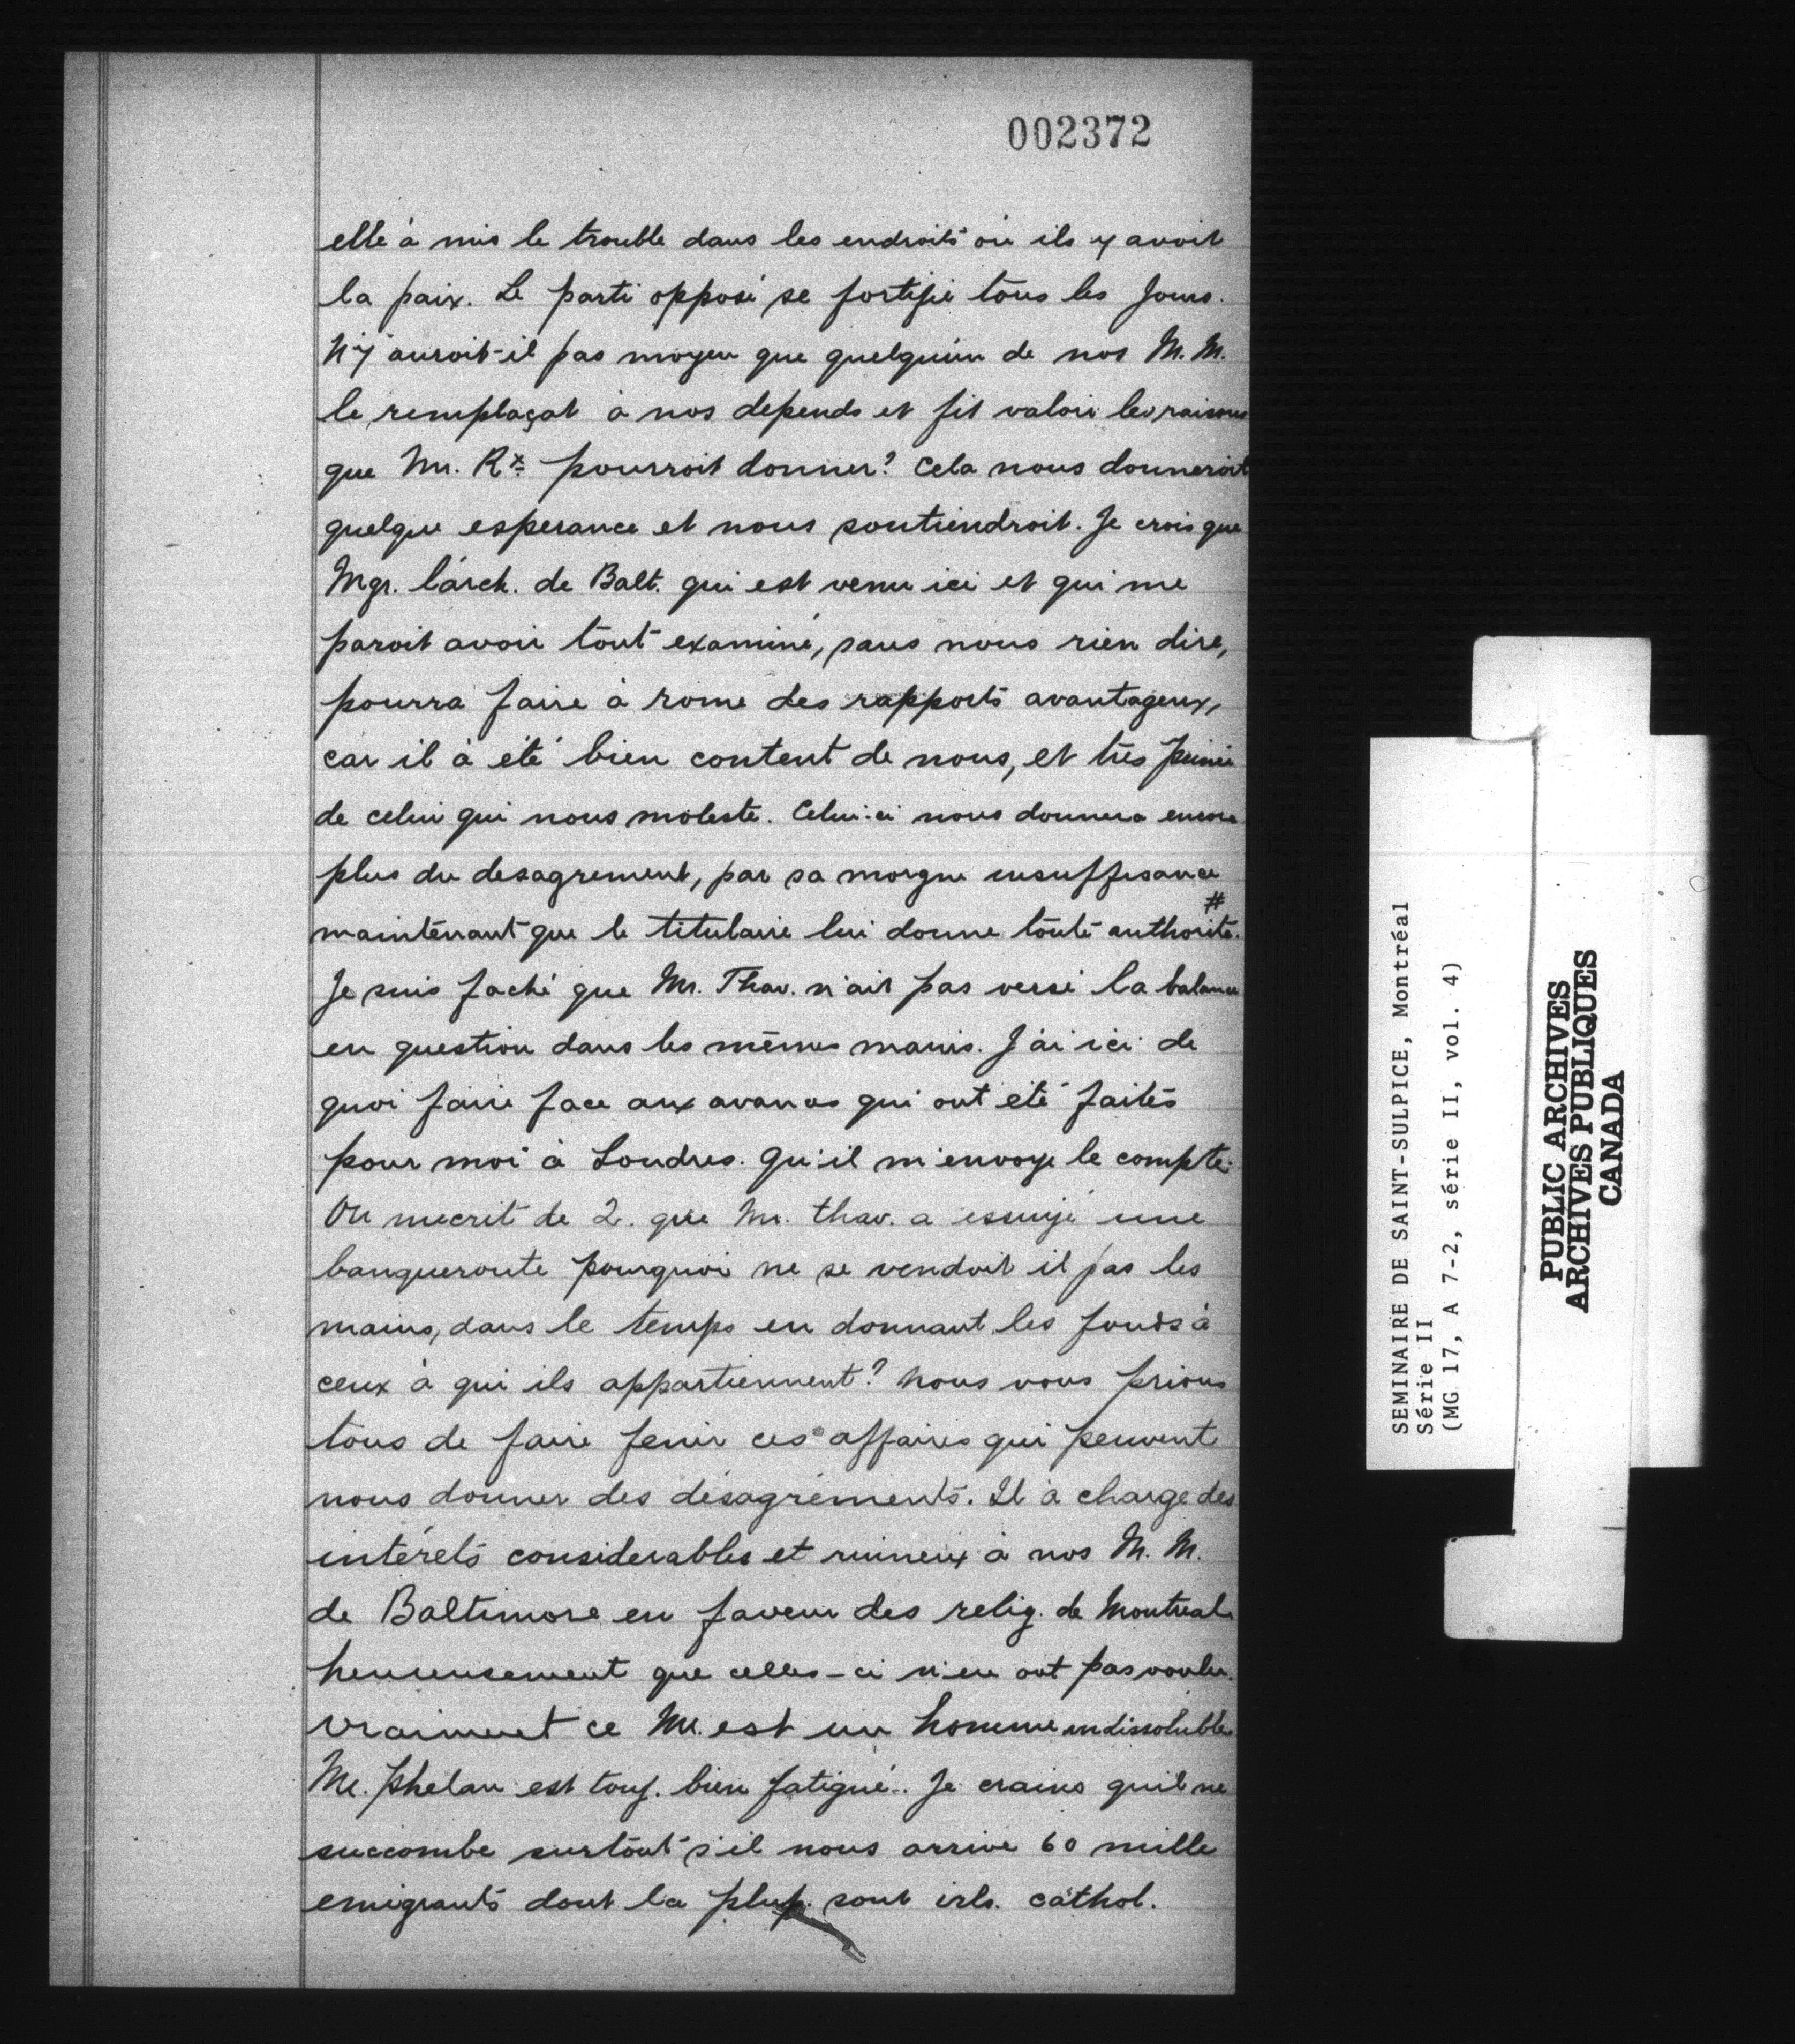 002372
elle à mis le trouble dans les endroits où ils y avoit
la paix. Le parti opposé se fortifie tous les Jours.
N'y auroit-il pas moyen que quelqu'un de nos M. M.
le remplaçat à nos depends et fit valoir les raisons
que Mr. Rx. pourroit donner? Cela nous donneroit
quelque esperance et nous soutiendroit. Je crois que
Mgr. l'arch. de Balt. qui est venu ici et qui me
paroit avoir tout examiné, sans nous rien dire,
pourra faire à rome des rapports avantageux,
car il à été bien content de nous, et très peiné
de celui qui nous moleste. Celui-ci nous donnera encore
plus du desagrement, par sa morgue insuffisance
#
maintenant que le titulaire lui donne toute authorité.
Je suis faché que Mr. Thav. n'ait pas versé la balance
en question dans les mêmes mains. J'ai ici de
quoi faire face aux avances qui ont été faites
pour moi à Londres. Qu'il m'envoye le compte.
On mecrit de 2. que Mr. thav. a essuyé une
banqueroute pourquoi ne se vendoit il pas les
mains, dans le temps en donnant les fonds à
ceux à qui ils appartiennent? Nous vous prions
tous de faire fenir ces affaires qui peuvent
nous donner des désagréments. Il à charge des
intérets considerables et ruineux à nos M. M.
de Baltimore en faveur des relig. de Montreal
heureusement que celles-ci n'en ont pas voulu.
vraiment ce Mr. est un homme indissoluble
Mr. phelan est touj. bien fatigué. Je crains qu'il ne
succombe surtout s'il nous arrive 60 mille
emigrants dont la plup. sont irls. cathol.
SEMINAIRE DE SAINT-SULPICE, Montréal
Série II
(MG 17, A 7-2, série II, vol. 4)
PUBLIC ARCHIVES
ARCHIVES PUBLIQUES
CANADA